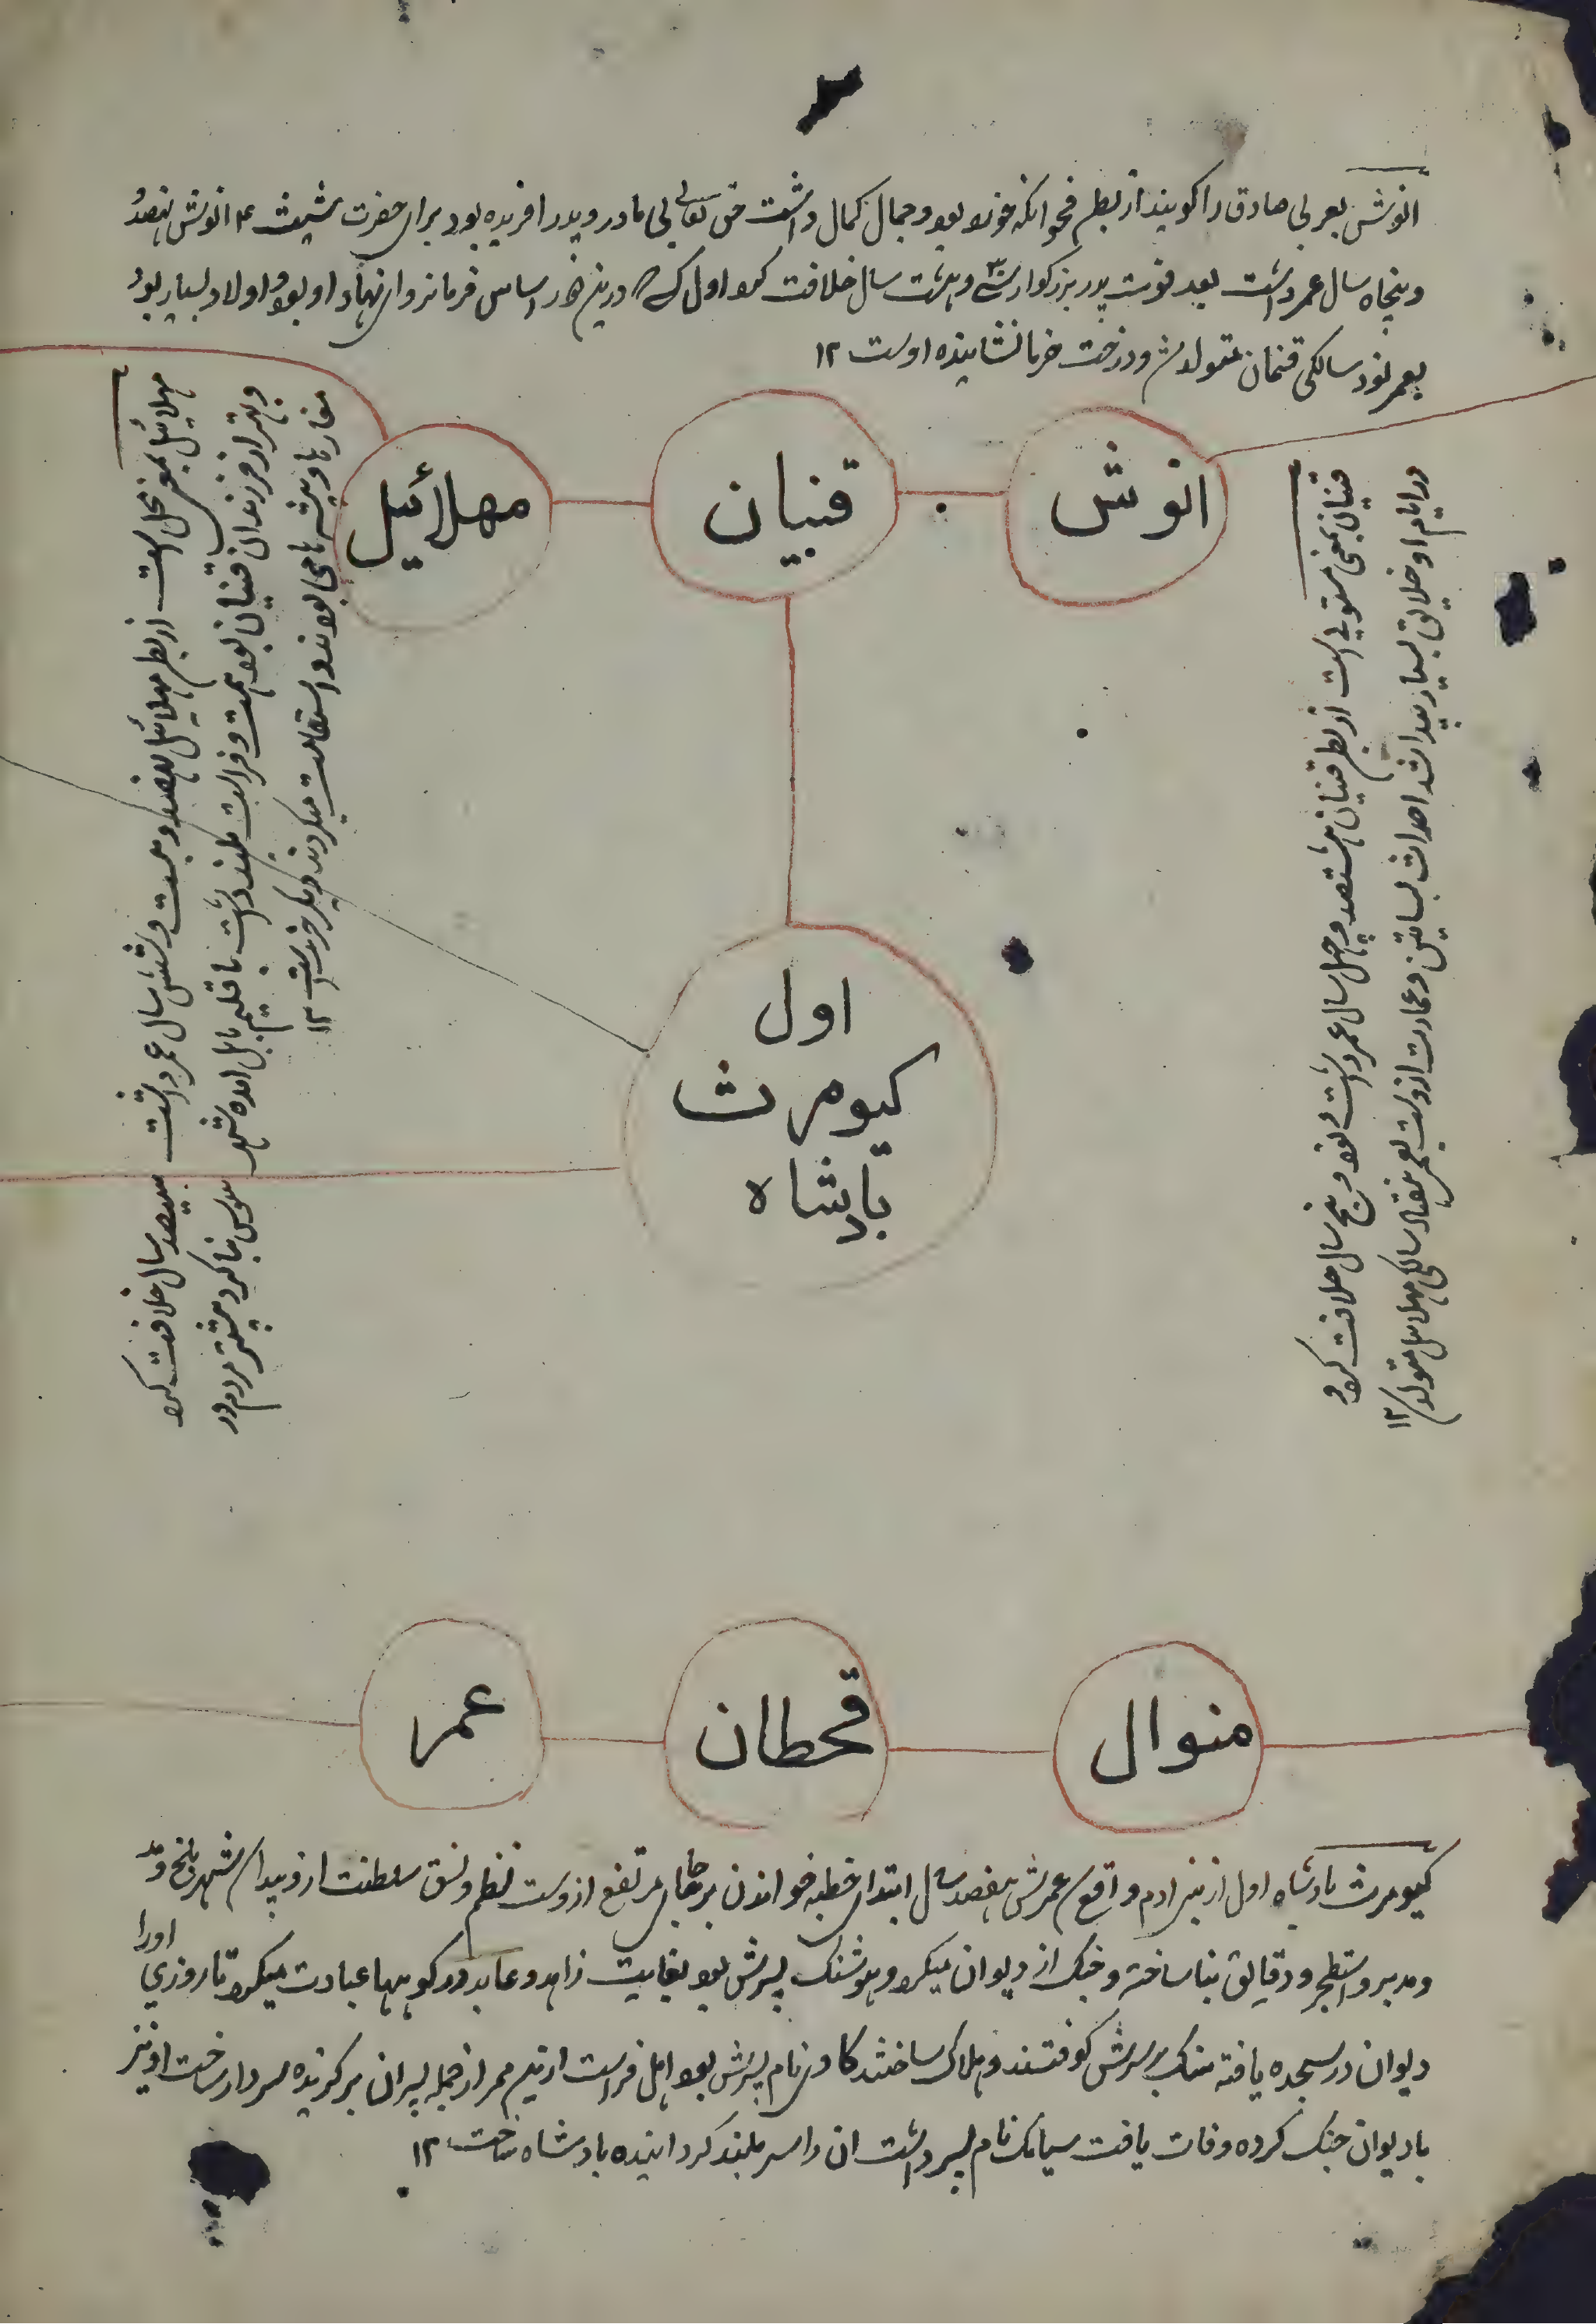 انوش بعربی صادق را کویند از بطم فحوانکه خوبرو بود و جمال کمال داشت حق تعالی بی مادر و پدر افریده بود برای حضرت شیث ۴ انوش نهصد
و پنجاه سال عمر داشت بعد فوت پدر بزرکوار سی و هشت سال خلافت کرد اول کی که درین اساس فرمانروای نهاد او بود و اولاد بسیار بود
بعمر نود سالکی قنان متولد شد و درخت خرما نشاینده اوست ۱۲
انوش
قنیان
مهلائیل
قنیان بمعنی مستولی است از بطم قنیان هشتصد و چهل سال عمر داشت و نود و پنج سال خلافت کرد و
در ایام او خلایق بسیار پیدا شد احداث بساتین و عمارت ازوست بعمر هفتاد سالکی مهلائیل متولد شد ۱۲
مهلائیل بمعنی است از بطم مهلائیل نهصد و بیست و شش سال عمر داشت سیصد سال خلافت کرد
و بهتر از فرزندان قنیان بود همت و فراست بلند داشت باقلیم بابل امده شهر سوس بنا کرد پیشتر مردم در
مغارها و بیشه ها می بودند و استقامت میکردند
اول
کیومرث
پادشاه
منوال
قحطان
عمر
کیومرث پادشاه اول از بنی ادم واقع شد عمرش هفصد سال ابتدای خطبه خواندن بر جای مرتفع ازوست نظم و نسق سلطنت ازو پیدا شد شهر بلخ و
و اصطخر و بنا ساخته و جنک از دیوان میکرد و هوشنک پسرش بود بغایت زاهد و عابد در کوهها عبادت میکرد تا روزی او را
دیوان در سجده یافته سنک بر سرش کوفتند و هلاک ساختند نام پسرش بود اهل فراست از جمله پسران بر کزیده سردار ساخت او نیز
با دیوان جنک کرده وفات یافت سیامک نام پسر داشت ان را سر بلند کردانیده بادشاه ساخت ۱۲